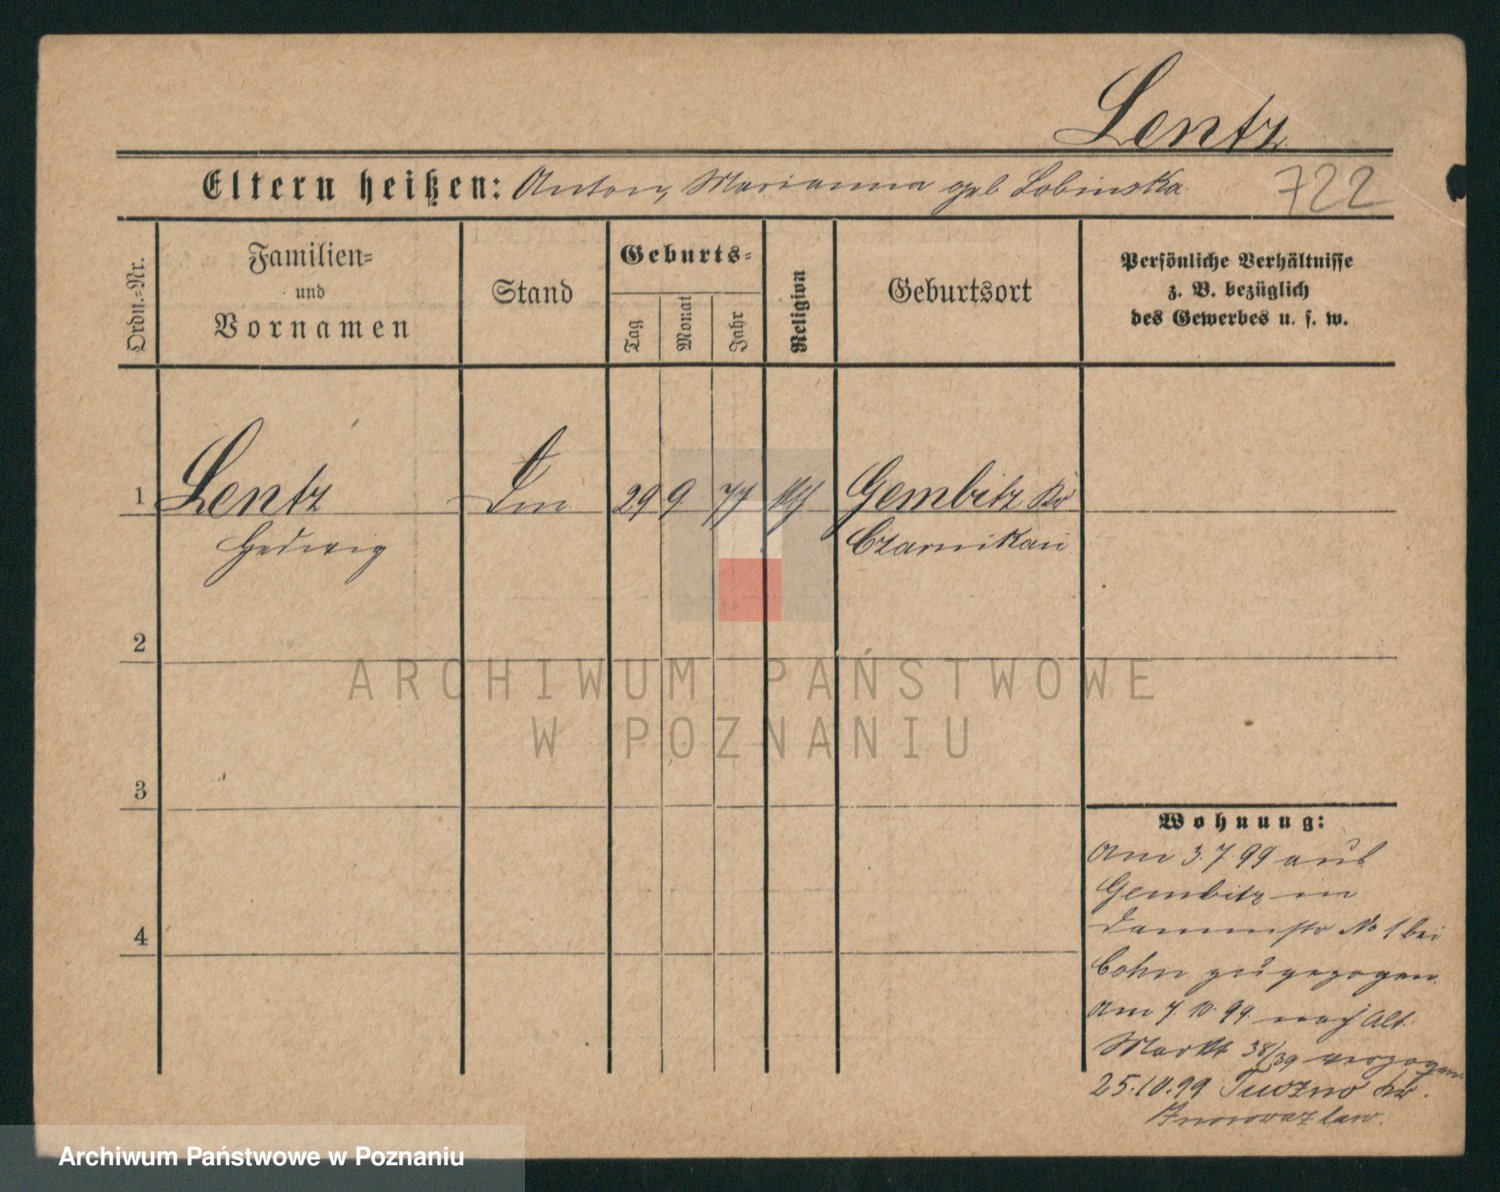 Lentz
Eltern heißen: Anton, Marianna geb Lobinska 722
Ordn.-Nr.
Familien-
und
Vornamen
Stand
Geburts-
Tag
Monat
Jahr
Religion
Geburtsort
Persönliche Verhältnisse
z. B. bezüglich
des Gewerbes u. s. w.
1 Lentz 29 9 77 Gembitz Kr
Hedwig Czarnikau
2
3
4
Wohnung:
Am 3.7.99 aus
Gembitz in
Dammstr No 1 bei
Cohn zugezogen
Am 7.10.99 nach Alt.
Markt 38/39 verzogen.
25.10.99 Tuczno Kr.
Inowrazlaw.
ARCHIWUM PAŃSTWOWE
W POZNANIU
Archiwum Państwowe w Poznaniu